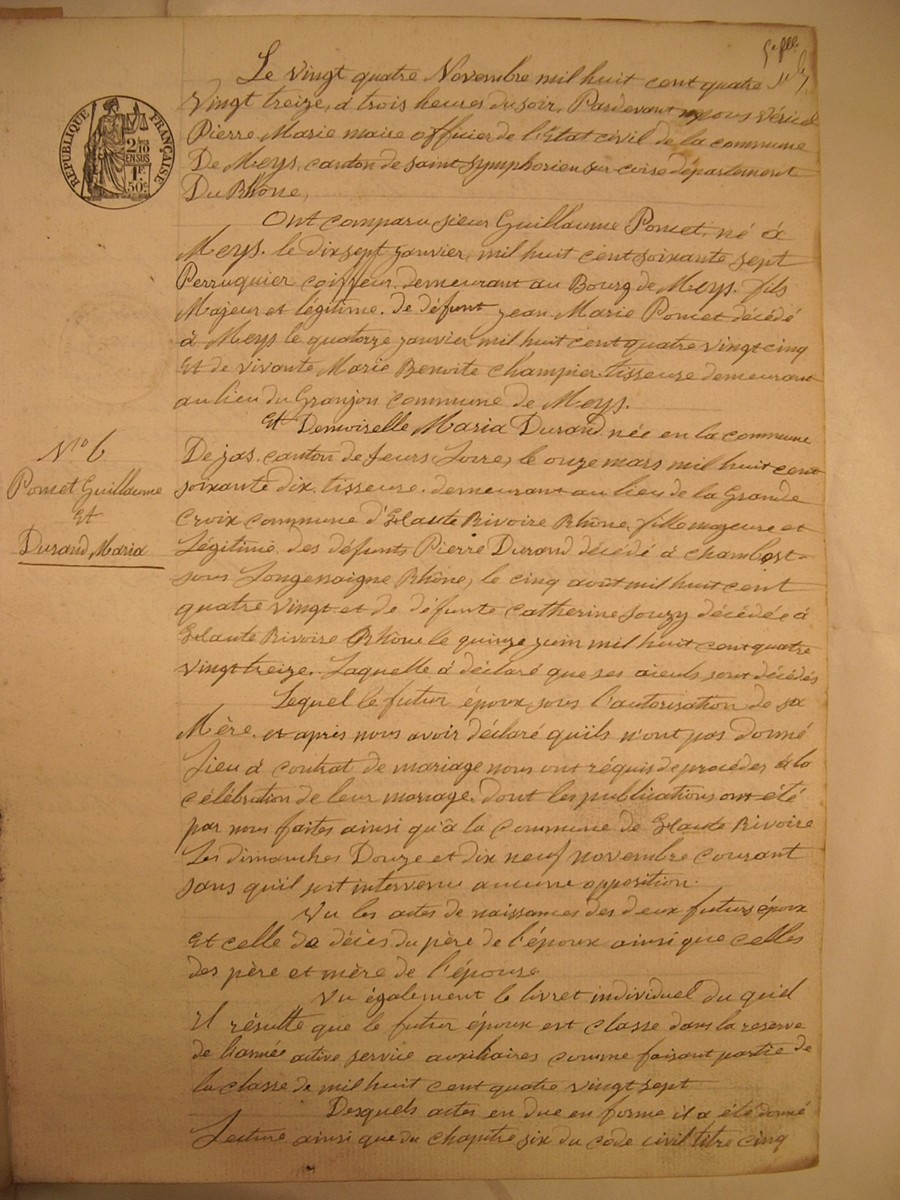 5e flle
RÉPUBLIQUE FRANÇAISE
2/10 EN SUS
1F. 50c.
Le vingt quatre Novembre mil huit cent quatre
Vingt treize, à trois heures du soir, Pardevant nous Véricel
Pierre Marie maire officier de l'Etat civil de la commune
De Meys, canton de saint symphorien sur coise département
Du Rhône,
Ont comparu sieur Guillaume Poncet, né à
Meys. le dix sept janvier, mil huit cent soixante sept
Perruquier coiffeur demeurant au Bourg de Meys. fils
Majeur et légitime. de défunt jean Marie Poncet décédé
à Meys le quatorze janvier mil huit cent quatre vingt cinq
Et de vivante Marie Benoite champier tisseuse demeurant
au lieu du Granjon commune de Meys.
Et Demoiselle Maria Durand née en la commune
De jas. canton de feurs (Loire) le onze mars mil huit cent
soixante dix. tisseure. demeurant au lieu de la Grande
Croix commune d'Haute Rivoire Rhône, fille majeure et
Légitime des défunts Pierre Durand décédé à chambost
sous Longessaigne Rhône, le cinq août mil huit cent
quatre vingt et de défunte catherine Souzy décédée à
Haute Rivoire Rhône le quinze juin mil huit cent quatre
vingt treize. Laquelle à déclaré que ses aieuls sont décédés
Lequel le futur époux sous l'autorisation de sa
Mère. et après nous avoir déclaré qu'ils n'ont pas donné
Lieu à contrat de mariage nous ont réquis de procéder à la
célébration de leur mariage. dont les publications ont été
par nous faites ainsi qu'à la Commune de Haute Rivoire
Les dimanches Douze et dix neuf novembre courant
sans qu'il soit intervenu aucune opposition.
Vu les actes de naissances des deux futurs époux
Et celle de décès du père de l'époux ainsi que celles
des père et mère de l'épouse
Vu également le livret individuel du quel
Il résulte que le futur époux est classe dans la reserve
de l'armée active service auxiliaires comme faisant partie de
la classe de mil huit cent quatre vingt sept
Desquels actes en due en forme il a été donné
Lecture ainsi que du chapitre six du code civil titre cinq
No 6
Poncet Guillaume
Et
Durand Maria